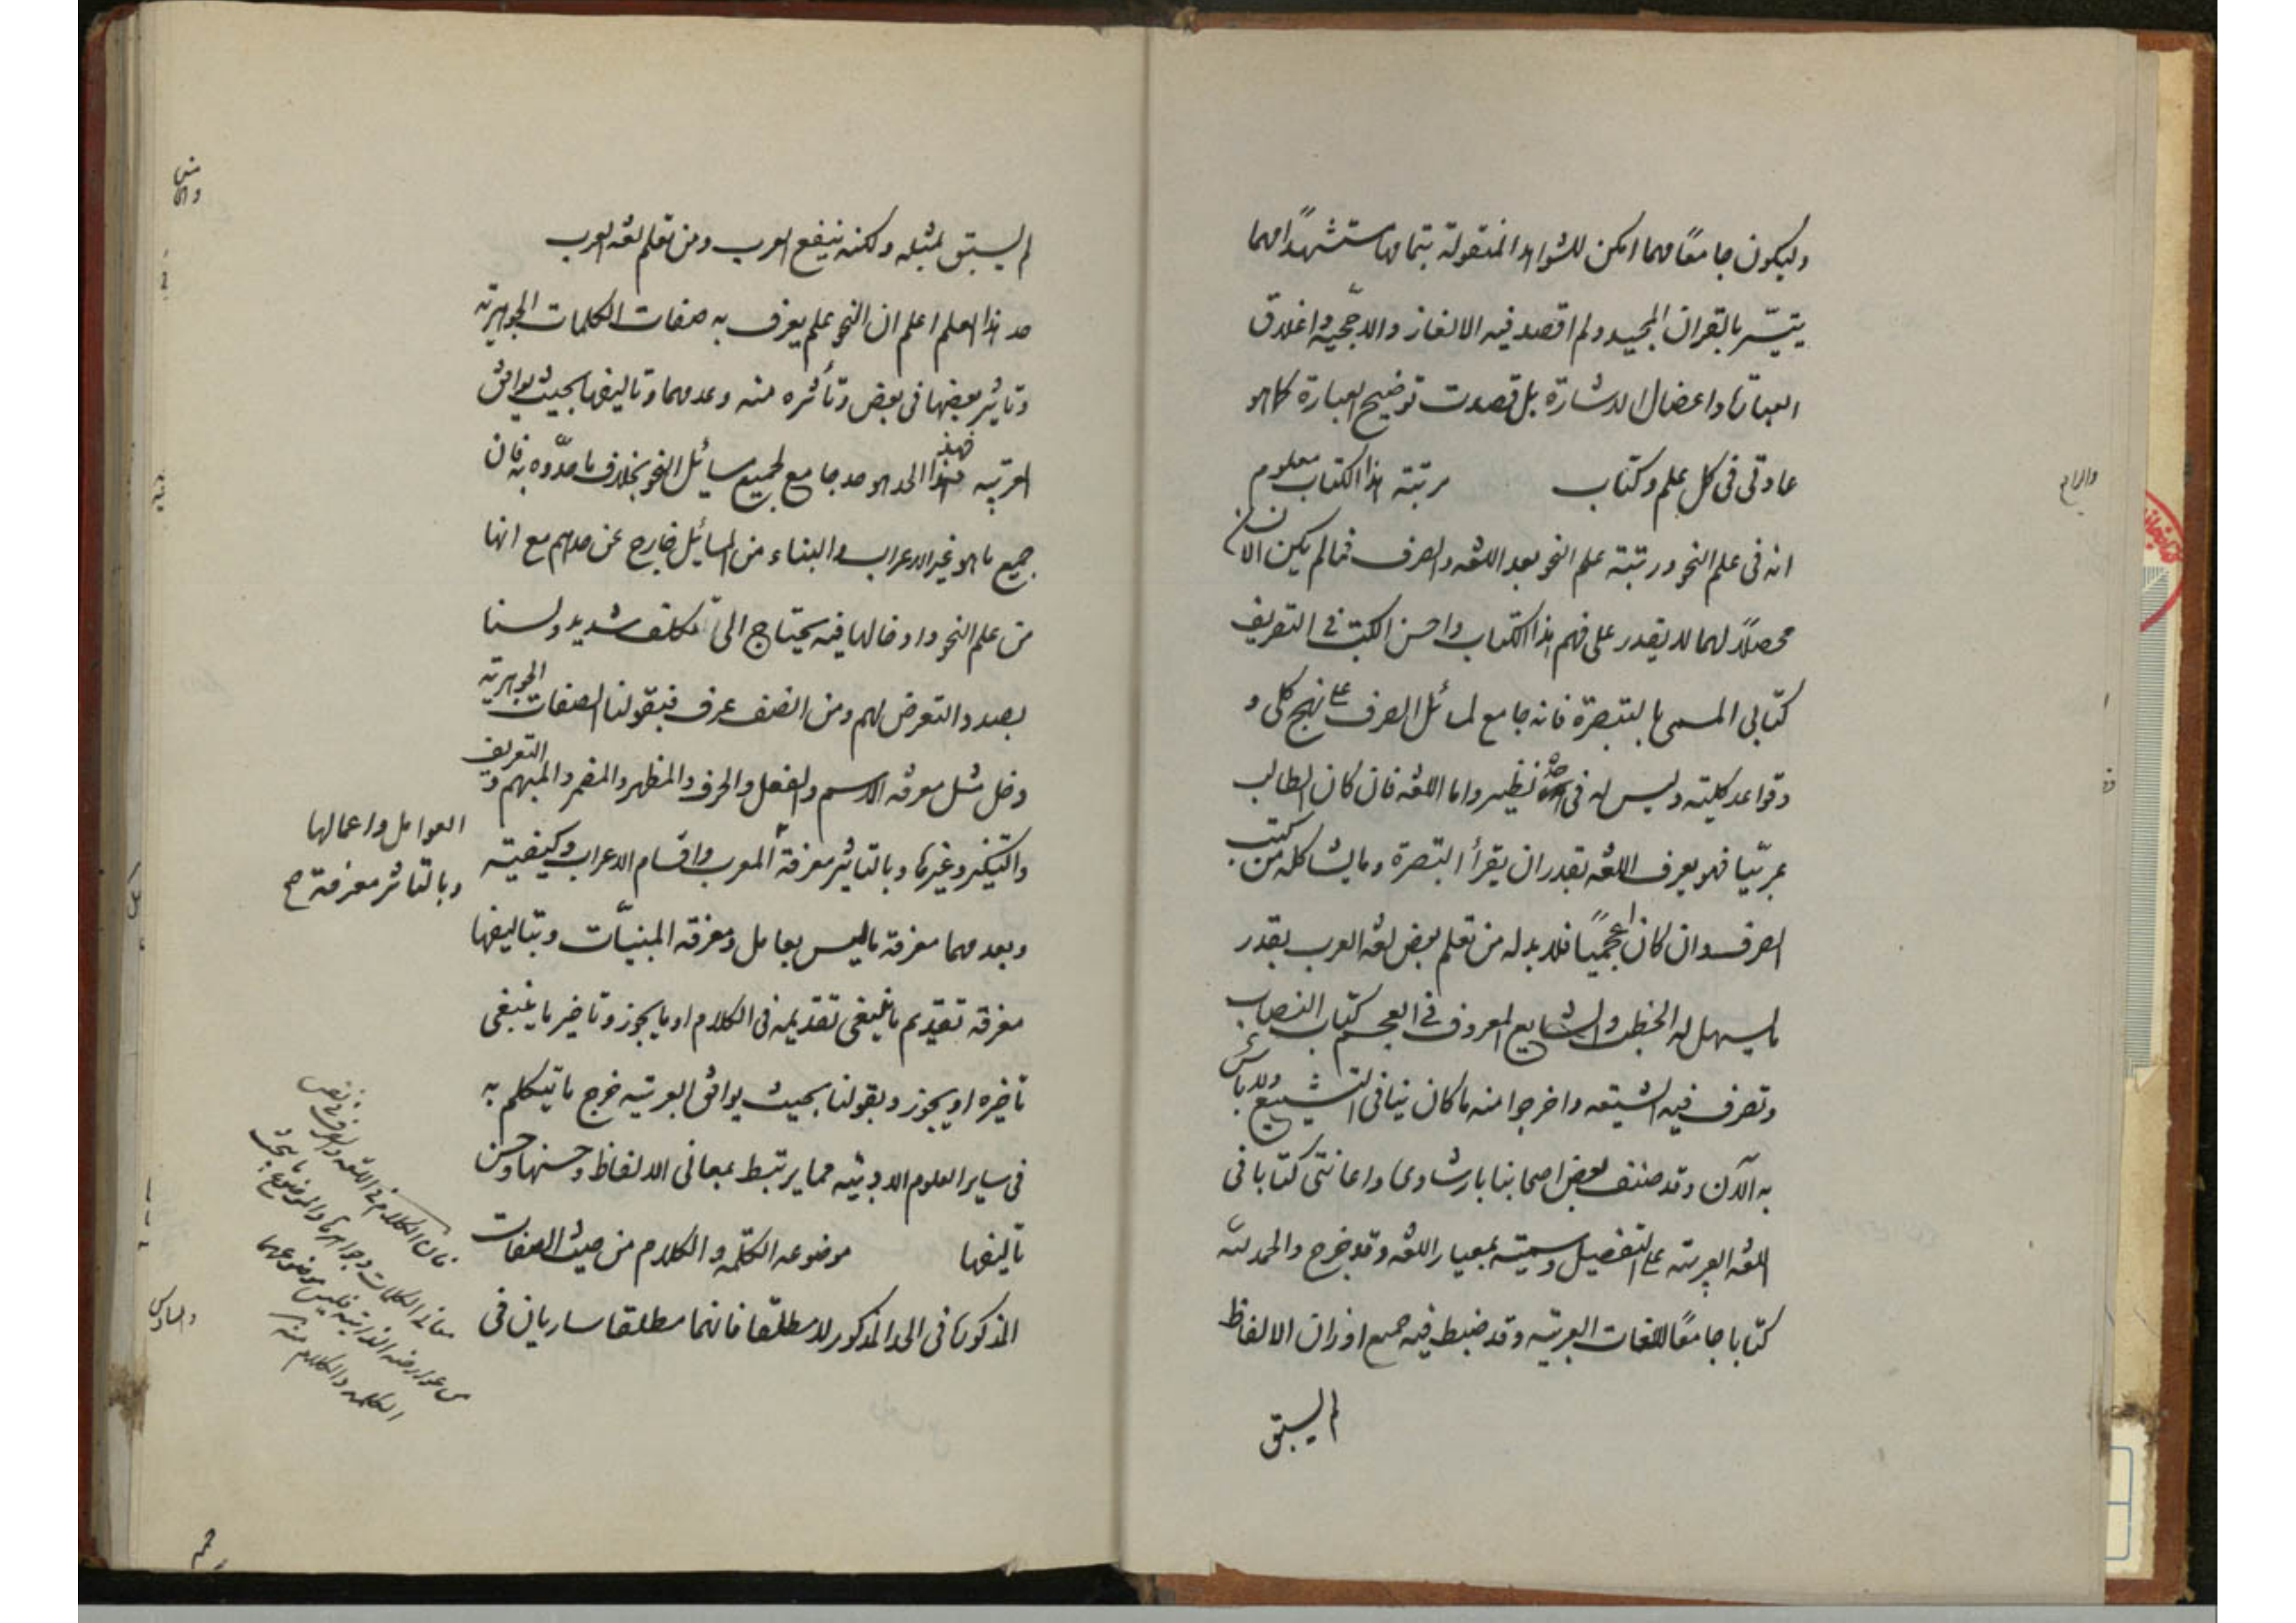 وليكون جامعًا مهما امكن للشواهد المنقولة بتمامها مستشهدًا مهما
يتيسّر بالقران المجيد ولم اقصد فيه الالغاز والاحجية واغلاق
العبارة واعضال الاشارة بل قصدت توضيح العبارة كما هو
عادتى فى كل علم وكتاب مرتبة هذا الكتاب معلوم
انه فى علم النحو ورتبته علم النحو بعد اللغة والصرف فمالم يكن الانسان
محصلاً لهما لا يقدر على فهم هذا الكتاب واحسن الكتب فى التصريف
كتابى المسمى بالتبصرة فانه جامع لمسائل الصرف على نهج كلى و
وقواعد كلية وليس له فى نظير واما اللغة فان كان الطالب
عربيّا فهو يعرف اللغة بقدر ان يقرأ التبصرة وما يشاكله من كتب
الصرف وان كان اعجميًا فلا بد له من تعلم بعض لغة العرب بقدر
ما يسهل له الخطب والشايع المعروف فى العجم كتاب النصاب
وتصرف فيه الشيعة واخرجوا منه ما كان ينافى التشيع ولا باس
به الآن وقد صنف بعض اصحابنا بارشادى واعانتى كتابا فى
اللغة العربية على التفصيل وسميته بمعيار اللغة وقد خرج والحمد لله
كتابا جامعًا للغات العربية وقد ضبط فيه جميع اوزان الالفاظ
لم يسبق
لم يسبق بمثله ولكنه ينفع العرب ومن تعلم لغة العرب
حد هذا العلم اعلم ان النحو علم يعرف به صفات الكلمات الجوهرية
وتاثير بعضها فى بعض وتأثره منه وعدمهما وتاليفها بحيث يوافق
العربية فهذا الحد هو حد جامع لجميع مسائل النحو بخلاف ما حدّوه به فان
جميع ما هو غير الاعراب والبناء من المسائل خارج عن حدهم مع انها
من علم النحو وادخالها فيه يحتاج الى تكلف شديد ولسنا
بصدد التعرض لهم ومن انصف عرف فبقولنا الصفات الجوهرية
دخل مثل معرفة الاسم والفعل والحرف والمظهر والمضمر والمبهم و التعريف
والتنكير وغيرها وبالتاثير معرفة المعرب واقسام الاعراب وكيفيته
العوامل واعمالها
وبالتاثر معرفة صح
وبعدمهما معرفة ما ليس بعامل ومعرفة المبنيّات وبتاليفها
معرفة تقديم ما ينبغى تقديمه فى الكلام او ما يجوز وتاخير ما ينبغى
تاخيره او يجوز وبقولنا بحيث يوافق العربية خرج ما يتكلم به
فى ساير العلوم الادبية مما يرتبط بمعانى الالفاظ وحسنها وحسن
تاليفها موضوعه الكلمة والكلام من حيث الصفات
المذكورة فى الحد المذكور لا مطلقا فانهما مطلقا ساريان فى
فان الكلام فى اللغة والصرف
معانى الكلمات وجواهرها والموضوع ما يبحث
عن عوارضه الذاتية فليس موضوعهما
الكلمة والكلام منه